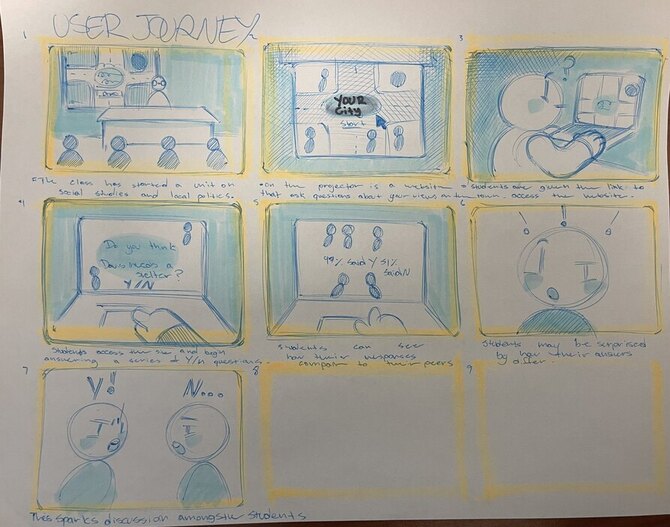 USER JOURNEY
1
2
3
YOUR
City
Start
The class has started a unit on
social studies and local politics.
on the projector is a website
that ask questions about your views on the town.
students are given the link to
access the website.
4
5
6
Do you think
Davis needs a
shelter?
Y/N
49% said Y 51%
said N
Students access the site and begin
answering a series of Y/N questions
Students can see
how their responses
compair to their peers
Students may be surprised
by how their answers
differ.
7
8
9
Y!
N...
This sparks discussion amongste students